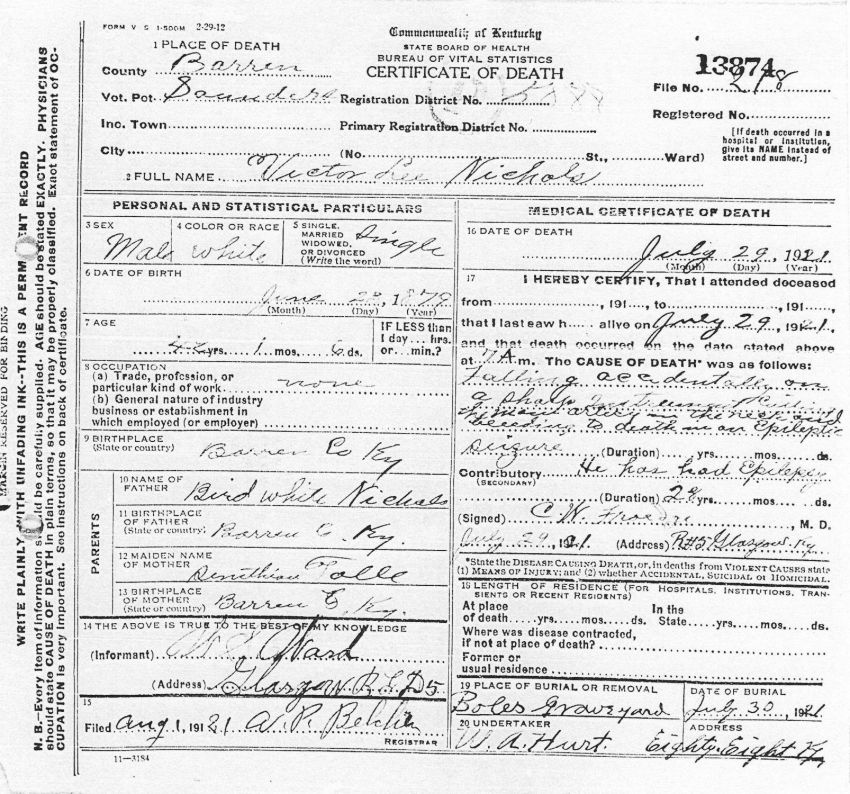 FORM V S 1-500M 2-29-12
Commonwealth of Kentucky
STATE BOARD OF HEALTH
BUREAU OF VITAL STATISTICS
CERTIFICATE OF DEATH
1 PLACE OF DEATH
County Barren
Vot. Pct. Saunders Registration District No.
Inc. Town Primary Registration District No.
City (No. St., Ward)
13874
File No. 218
Registered No.
[If death occurred in a hospital or institution, give its NAME instead of street and number.]
2 FULL NAME Victor Lee Nichols
PERSONAL AND STATISTICAL PARTICULARS
3 SEX Male
4 COLOR OR RACE white
5 SINGLE, MARRIED WIDOWED, OR DIVORCED (Write the word) Single
6 DATE OF BIRTH
June 1879
(Month) (Day) (Year)
7 AGE
42 yrs. 1 mos. 6 ds.
IF LESS than 1 day... hrs. or... min.?
8 OCCUPATION
(a) Trade, profession, or particular kind of work none
(b) General nature of industry business or establishment in which employed (or employer)
9 BIRTHPLACE
(State or country) Barren Co Ky
PARENTS
10 NAME OF FATHER Bird White Nichols
11 BIRTHPLACE OF FATHER (State or country) Barren C. Ky.
12 MAIDEN NAME OF MOTHER Tolle
13 BIRTHPLACE OF MOTHER (State or country) Barren C. Ky.
14 THE ABOVE IS TRUE TO THE BEST OF MY KNOWLEDGE
(Informant) Ward
(Address) Glasgow R F D 5
15
Filed Aug 1, 1921 W. P. Belcher
REGISTRAR
11-3184
MEDICAL CERTIFICATE OF DEATH
16 DATE OF DEATH
July 29, 1921
(Month) (Day) (Year)
17 I HEREBY CERTIFY, That I attended deceased
from, 191, to, 191,
that I last saw h alive on July 29, 1921,
and that death occurred on the date stated above
at 7 A m. The CAUSE OF DEATH* was as follows:
Falling accidentally on
a sharp instrument
artery in the neck and
bleeding to death in an Epileptic
seizure (Duration) yrs. mos. ds.
Contributory He has had Epilepsy
(SECONDARY)
(Duration) yrs. mos. ds.
(Signed) C. W. , M. D.
July 29, 1921 (Address) R#5 Glasgow Ky
*State the DISEASE CAUSING DEATH, or, in deaths from VIOLENT CAUSES state
(1) MEANS OF INJURY; and (2) whether ACCIDENTAL, SUICIDAL or HOMICIDAL.
18 LENGTH OF RESIDENCE (FOR HOSPITALS, INSTITUTIONS, TRANSIENTS OR RECENT RESIDENTS)
At place of death yrs. mos. ds. In the State yrs. mos. ds.
Where was disease contracted,
if not at place of death?
Former or
usual residence
19 PLACE OF BURIAL OR REMOVAL
Boles Graveyard
DATE OF BURIAL
July 30, 1921
20 UNDERTAKER
W. A. Hurt.
ADDRESS
Eighty-Eight Ky
MARGIN RESERVED FOR BINDING
WRITE PLAINLY WITH UNFADING INK--THIS IS A PERMANENT RECORD
N. B.--Every item of information should be carefully supplied. AGE should be stated EXACTLY. PHYSICIANS
should state CAUSE OF DEATH in plain terms, so that it may be properly classified. Exact statement of OC-
CUPATION is very important. See instructions on back of certificate.